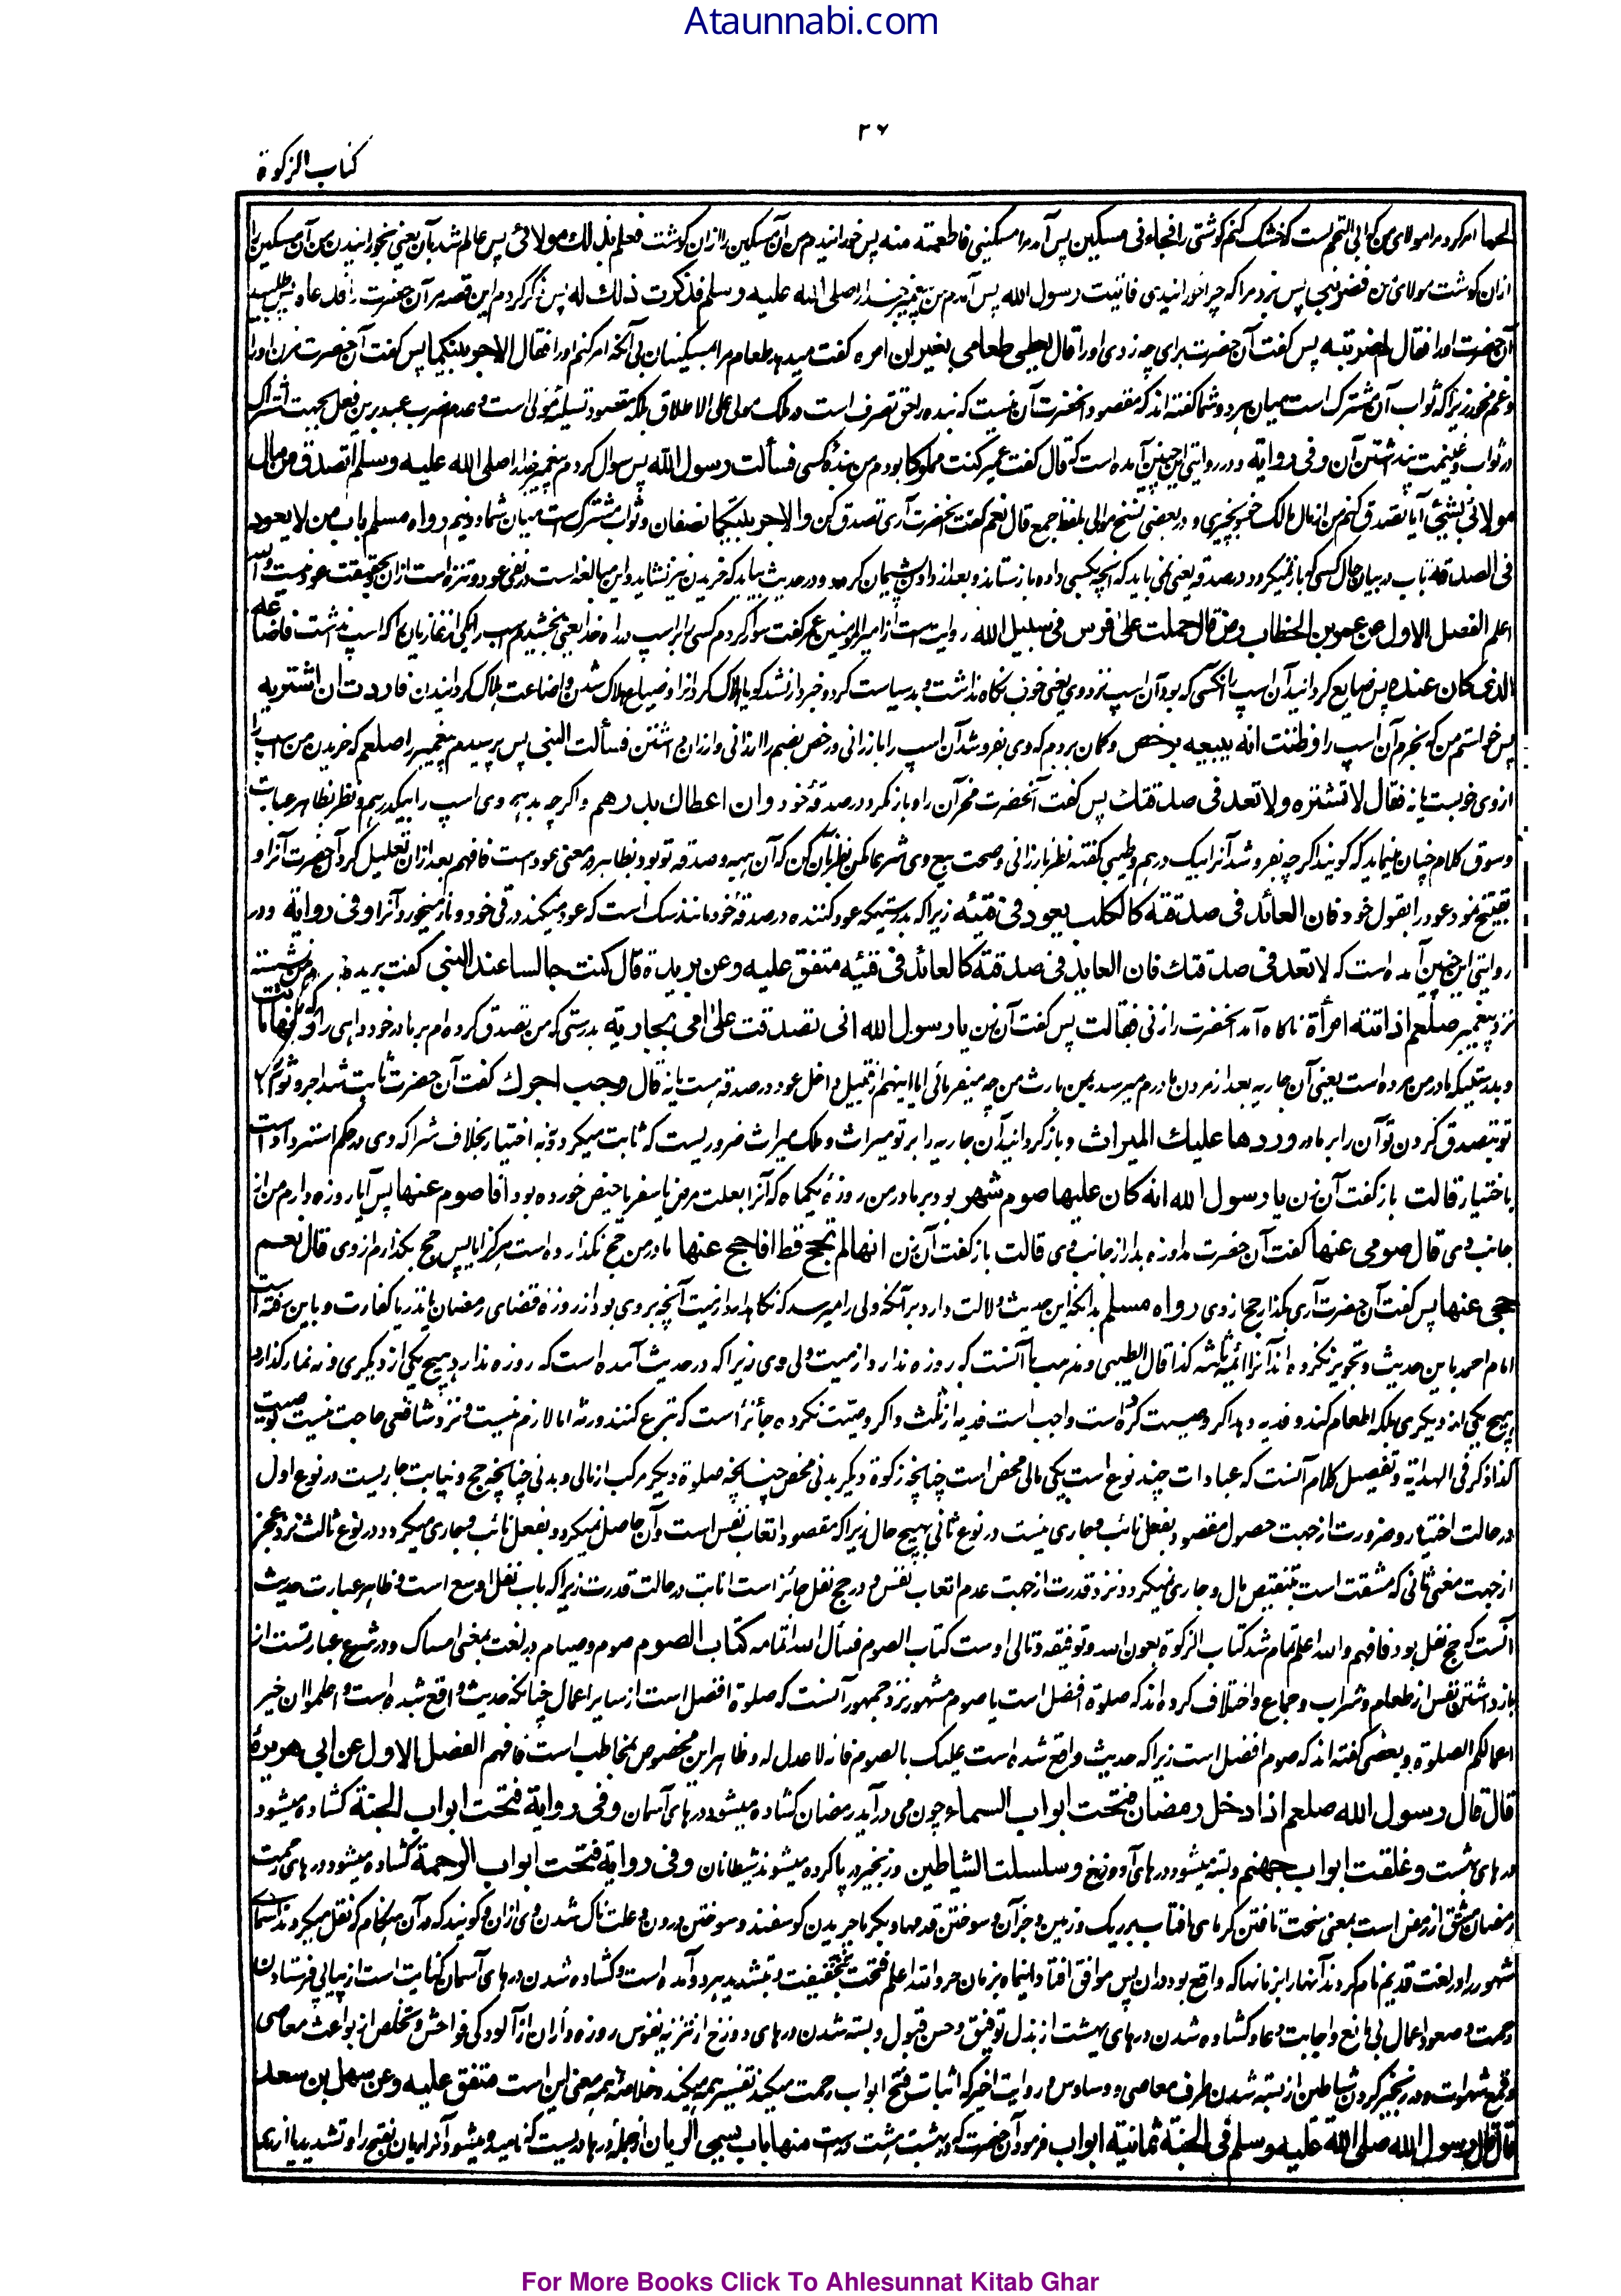 Ataunnabi.com
۲۶
کتاب الزکوة
لحما امر کرد مرا مولای من که ابی اللحم ست که خشک کنم گوشتی را فجاءنی مسکین پس آمد مرا مسکینی فاطعمته منه پس خورانیدم من آن مسکین را ازان گوشت فعلم بذلک مولائی پس عالم شد بآن یعنی بخورانیدن من آن مسکین را
ازان گوشت مولای من فضربنی پس بزد مرا که چرا خورانیدی فاتیت رسول الله پس آمدم من پیغمبر خدا را صلی الله علیه وسلم فذکرت ذلک له پس ذکر کردم این قصه مر آن حضرت را فدعاه پس طلبید
آن حضرت او را فقال لم ضربته پس گفت آن حضرت برای چه زدی او را قال یعطی طعامی بغیر ان امره گفت میدهد طعام مرا بمسکینان بی آنکه امر کنم او را فقال الاجر بینکما پس گفت آن حضرت مزن او را
و غم مخور زیرا که ثواب آن مشترک است میان هر دو شما گفته اند که مقصود آنحضرت آن نیست که بنده را حق تصرف است در ملک مولی علی الاطلاق بلکه مقصود تسلیه مولی است و عدم ضرب عبد برین فعل بجهت اشتراک
در ثواب و غنیمت پنداشتن آن وفی روایة و در روایتی این چنین آمده است که قال گفت عمیر کنت مملوکا بودم من بنده کسی فسألت رسول الله پس سوال کردم پیغمبر خدا را صلی الله علیه وسلم اتصدق من مال
مولائی بشیئ آیا تصدق کنم من از مال مالک خود بچیزی و در بعضی نسخ موالی بلفظ جمع قال نعم گفت آنحضرت آری تصدق کن والاجر بینکما نصفان و ثواب مشترک ست میان شما دو نیم رواه مسلم باب من لا یعود
فی الصدقة باب در بیان حال کسی که باز نمیگردد در صدقه یعنی نمی باید که آنچه بکسی داده باز ستاند و بعد از دادن پشیمان گردد و در حدیث بیاید که خریدن نیز نشاید و این مبالغه است در نفی عود و تنزه است ازان و بحقیقت عود نیست والله
اعلم الفصل الاول عن عمر بن الخطاب رض قال حملت علی فرس فی سبیل الله روایت ست از امیر المؤمنین عمر گفت سوار کردم کسی را بر اسپ در راه خدا یعنی بخشیدم اسپ را بیکی از غازیان که اسپ نداشت فاضاعه
الذی کان عنده پس ضایع گردانید آن اسپ را آنکسی که بود آن اسپ نزد وی یعنی خوب نگاه نداشت و بد سیاست کرد و خبردار نشد گویا هلاک گردانید او را ضیاع هلاک شدن و اضاعت هلاک گردانیدن فاردت ان اشتریه
پس خواستم من که بخرم آن اسپ را وظننت انه یبیعه برخص و گمان بردم که وی بفروشد آن اسپ را بارزانی و رخص بضم را ارزانی و ارزان داشتن فسألت النبی پس پرسیدم پیغمبر را صلعم که خریدن من اسپ را
از وی خوبست یا نه فقال لا تشتره ولا تعد فی صدقتک پس گفت آنحضرت مخر آن را و باز مگرد در صدقه خود وان اعطاک بدرهم و اگرچه بدهد وی اسپ را بیک درهم و نظر بظاهر عبارت
و سوق کلام چنان مینماید که گویند اگرچه بفروشد آنرا بیک درهم و طیبی گفته نظر بارزانی و صحت بیع وی شرعا مکن نظر بآن کن که آن هبه و صدقه تو بود و بظاهر در معنی عود ست فافهم بعد ازان تعلیل کرد آنحضرت آنرا و
تقبیح نمود عود را بقول خود فان العائد فی صدقته کالکلب یعود فی قیئه زیرا که بدرستیکه عود کننده در صدقه خود مانند سگ است که عود میکند در قی خود و باز میخورد آنرا وفی روایة و در
روایتی این چنین آمده است که لا تعد فی صدقتک فان العاید فی صدقته کالعائد فی قیئه متفق علیه وعن بریدة قال کنت جالسا عند النبی گفت بریده بودم من نشسته
نزد پیغمبر صلعم اذ اتته امرأة ناگاه آمد آنحضرت را زنی فقالت پس گفت آن زن یا رسول الله انی تصدقت علی امی بجاریة بدرستی که من تصدق کرده ام بر مادر خود داهی را وانها ماتت
و بدرستیکه مادر من مرده است یعنی آن جاریه بعد از مردن مادرم میرسد بمن بارث من چه میفرمائی آیا اینهم از قبیل داخل عود در صدقه است یا نه قال وجب اجرک گفت آن حضرت ثابت شد اجر و ثواب
تو بتصدق کردن تو آن را بر مادر وردها علیک المیراث و باز گردانید آن جاریه را بر تو میراث و ملک میراث ضروریست که ثابت میگردد نه به اختیار بخلاف شرا که وی در حکم استرداد است
باختیار قالت باز گفت آن زن یا رسول الله انه کان علیها صوم شهر بود بر مادر من روزه یکماه که آنرا بعلت مرض یا سفر یا حیض خورده بود افاصوم عنها پس آیا روزه دارم من از
جانب وی قال صومی عنها گفت آن حضرت مر او را روزه بدار از جانب وی قالت باز گفت آن زن انها لم تحج قط افاحج عنها مادر من حج نگذارده است هرگز آیا پس حج بگذارم از وی قال نعم
حجی عنها پس گفت آن حضرت آری بگذار حج از وی رواه مسلم بدانکه این حدیث دلالت دارد بر آنکه ولی را میرسد که نگاهدارد از میت آنچه بر وی بود از روزه قضای رمضان یا نذر یا کفارت و باین رفته است
امام احمد باین حدیث و تجویز نکرده اند آنرا ائمه ثلثه کذا قال الطیبی و مذهب ما آنست که روزه ندارد از میت ولی وی زیرا که در حدیث آمده است که روزه ندارد هیچ یکی از دیگری و نه نماز گذارد
هیچ یکی از دیگری بلکه اطعام کند و فدیه دهد اگر وصیت کرده است واجب است فدیه از ثلث و اگر وصیت نکرده جائز است که تبرع کنند ورثه اما لازم نیست و نزد شافعی حاجت نیست بوصیت
کذا ذکر فی الهدایة و تفصیل کلام آنست که عبادات چند نوع است یکی مالی محض است چنانچه زکوة دیگر بدنی محض چنانچه صلوة دیگر مرکب از مالی و بدنی چنانچه حج و نیابت جاریست در نوع اول
در حالت اختیار و ضرورت از جهت حصول مقصود بفعل نائب و جاری نیست در نوع ثانی بهیچ حال زیرا که مقصود اتعاب نفس است و آن حاصل نمیگردد بفعل نائب و جاری میگردد در نوع ثالث نزد عجز
از جهت معنی ثانی که مشقت است بتنقیص مال و جاری نمیگردد نزد قدرت از جهت عدم اتعاب نفس و در حج نفل جائز است انابت در حالت قدرت زیرا که باب نفل اوسع است و ظاهر عبارت حدیث
آنست که حج نفل بود فافهم والله اعلم تمام شد کتاب الزکوة بعون الله و توفیقه و تالی اوست کتاب الصوم فسأل الله اتمامه کتاب الصوم صوم و صیام در لغت بمعنی امساک و در شرع عبارتست از
باز داشتن نفس از طعام و شراب و جماع و اختلاف کرده اند که صلوة افضل است یا صوم مشهور نزد جمهور آنست که صلوة افضل است از سایر اعمال چنانکه حدیث واقع شده است و اعلموا ان خیر
اعمالکم الصلوة و بعضی گفته اند که صوم افضل است زیرا که حدیث واقع شده است علیک بالصوم فانه لا عدل له و ظاهر این مخصوص بمخاطب است فافهم الفصل الاول عن ابی هریرة
قال قال رسول الله صلعم اذا دخل رمضان فتحت ابواب السماء چون می درآید رمضان کشاده میشود درهای آسمان وفی روایة فتحت ابواب الجنة کشاده میشود
درهای بهشت وغلقت ابواب جهنم و بسته میشود درهای دوزخ وسلسلت الشیاطین و زنجیر در پا کرده میشوند شیطانان وفی روایة فتحت ابواب الرحمة کشاده میشود درهای رحمت
رمضان مشتق از رمض است بمعنی سخت تافتن گرمای افتاب بر ریگ و زمین و جز آن و سوختن قدمها و بگرما چریدن گوسفند و سوختن درون و علت ناک شدن وی ازان و گویند که در آن هنگام که نقل میکردند اسمای
شهور را در لغت قدیم نام کردند آنها را بزمانها که واقع بود دران پس موافق افتاد این ماه بزمان حر والله اعلم فتحت بتخفیف و بتشدید هر دو آمده است و کشاده شدن درهای آسمان کنایت است از پیاپی فرستادن
رحمت و صعود اعمال بی مانع و اجابت دعا و کشاده شدن درهای بهشت از بذل توفیق و حسن قبول و بسته شدن درهای دوزخ از تنزیه نفوس روزه داران از آلودگی فواحش و تخلص از بواعث معاصی
و قمع شهوات و در زنجیر کردن شیاطین از بسته شدن طرف معاصی و وساوس و روایت اخیر که اثبات فتح ابواب رحمت میکند تفسیر همه میکند و خلاصه همه معنی این است متفق علیه وعن سهل بن سعد
قال قال رسول الله صلی الله علیه وسلم فی الجنة ثمانیة ابواب فرمود آن حضرت که در بهشت هشت در است منها باب یسمی الریان از جمله درها دریست که نامیده میشود آنرا ریان بفتح را و تشدید یا
For More Books Click To Ahlesunnat Kitab Ghar